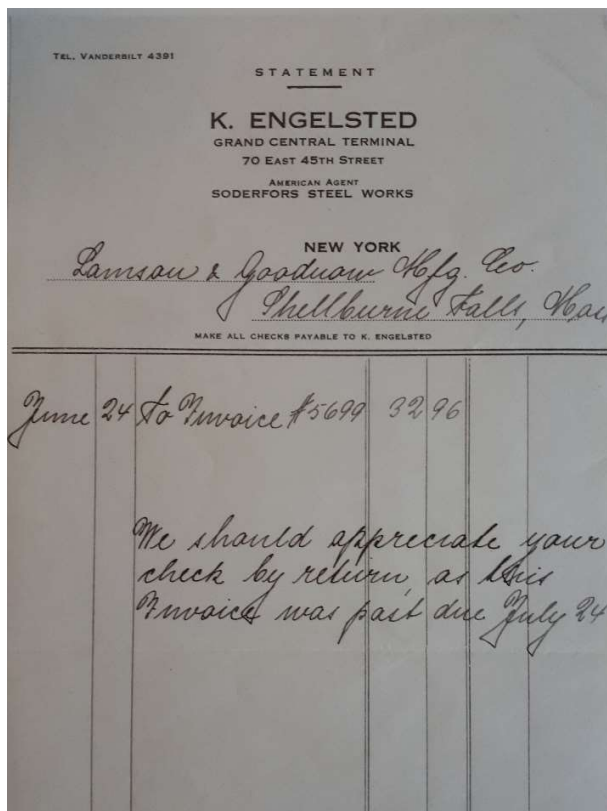 TEL, VANDERBILT 4391
STATEMENT
K. ENGELSTED
GRAND CENTRAL TERMINAL
70 EAST 45TH STREET
AMERICAN AGENT
SODERFORS STEEL WORKS
NEW YORK
Lamson & Goodnow Mfg. Co.
Shellburne Falls, Mass
MAKE ALL CHECKS PAYABLE TO K. ENGELSTED
June 24 To Invoice #5699 32 96
We should appreciate your
check by return, as this
Invoice was past due July 24